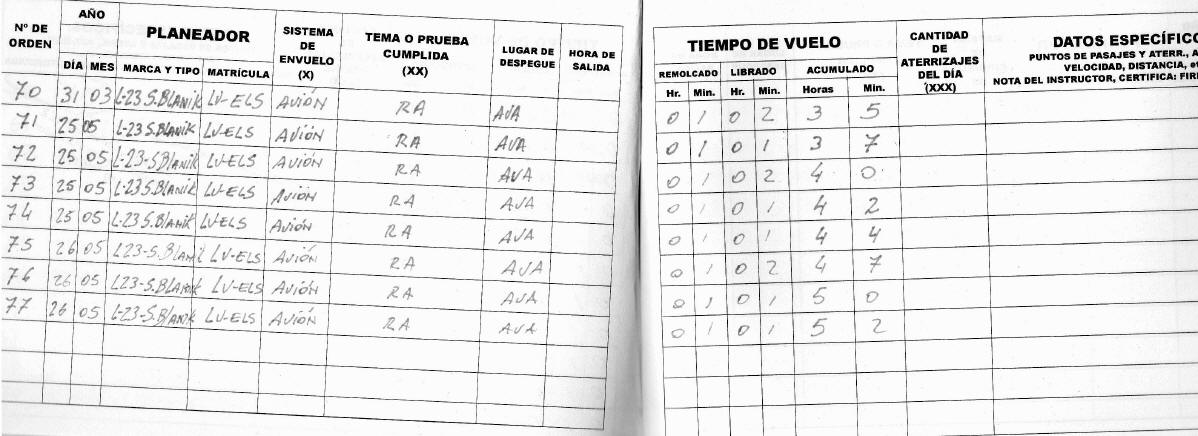 Nº DE ORDEN AÑO PLANEADOR SISTEMA DE ENVUELO (X) TEMA O PRUEBA CUMPLIDA (XX) LUGAR DE DESPEGUE HORA DE SALIDA TIEMPO DE VUELO CANTIDAD DE ATERRIZAJES DEL DÍA (XXX) DATOS ESPECÍFICO
PUNTOS DE PASAJES Y ATERR., A
VELOCIDAD, DISTANCIA, et
NOTA DEL INSTRUCTOR, CERTIFICA: FIR
DÍA MES MARCA Y TIPO MATRÍCULA REMOLCADO LIBRADO ACUMULADO
Hr. Min. Hr. Min. Horas Min.
70 31 03 L-23 S.Blanik LV-ELS Avión RA AVA 0 1 0 2 3 5
71 25 05 L-23 S.Blanik LV-ELS Avión RA AVA 0 1 0 1 3 7
72 25 05 L-23-S.Blanik LV-ELS Avión RA AVA 0 1 0 2 4 0
73 25 05 L-23 S.Blanik LV-ELS Avión RA AVA 0 1 0 1 4 2
74 25 05 L-23 S.Blanik LV-ELS Avión RA AVA 0 1 0 1 4 4
75 26 05 L23-S.Blanik LV-ELS Avión RA AVA 0 1 0 2 4 7
76 26 05 L23-S.Blanik LV-ELS Avión RA AVA 0 1 0 1 5 0
77 26 05 L-23-S.Blanik LV-ELS Avión RA AVA 0 1 0 1 5 2